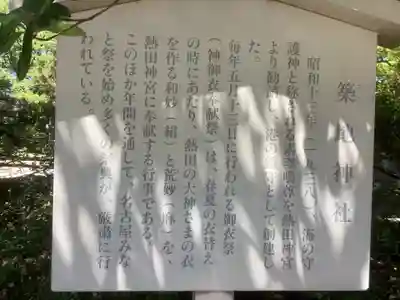 築地神社
昭和十三年(一九三八)、海の守
護神と称される素盞嗚尊を熱田神宮
より勧請し、港の守神として創建し
た。
毎年五月十三日に行われる御衣祭
(神御衣奉献祭)は、春夏の衣替え
の時にあたり、熱田の大神さまの衣
を作る和妙(絹)と荒妙(麻)を、
熱田神宮に奉献する行事である。
このほか年間を通して、名古屋みな
と祭を始め多くの祭典が、厳粛に行
われている。